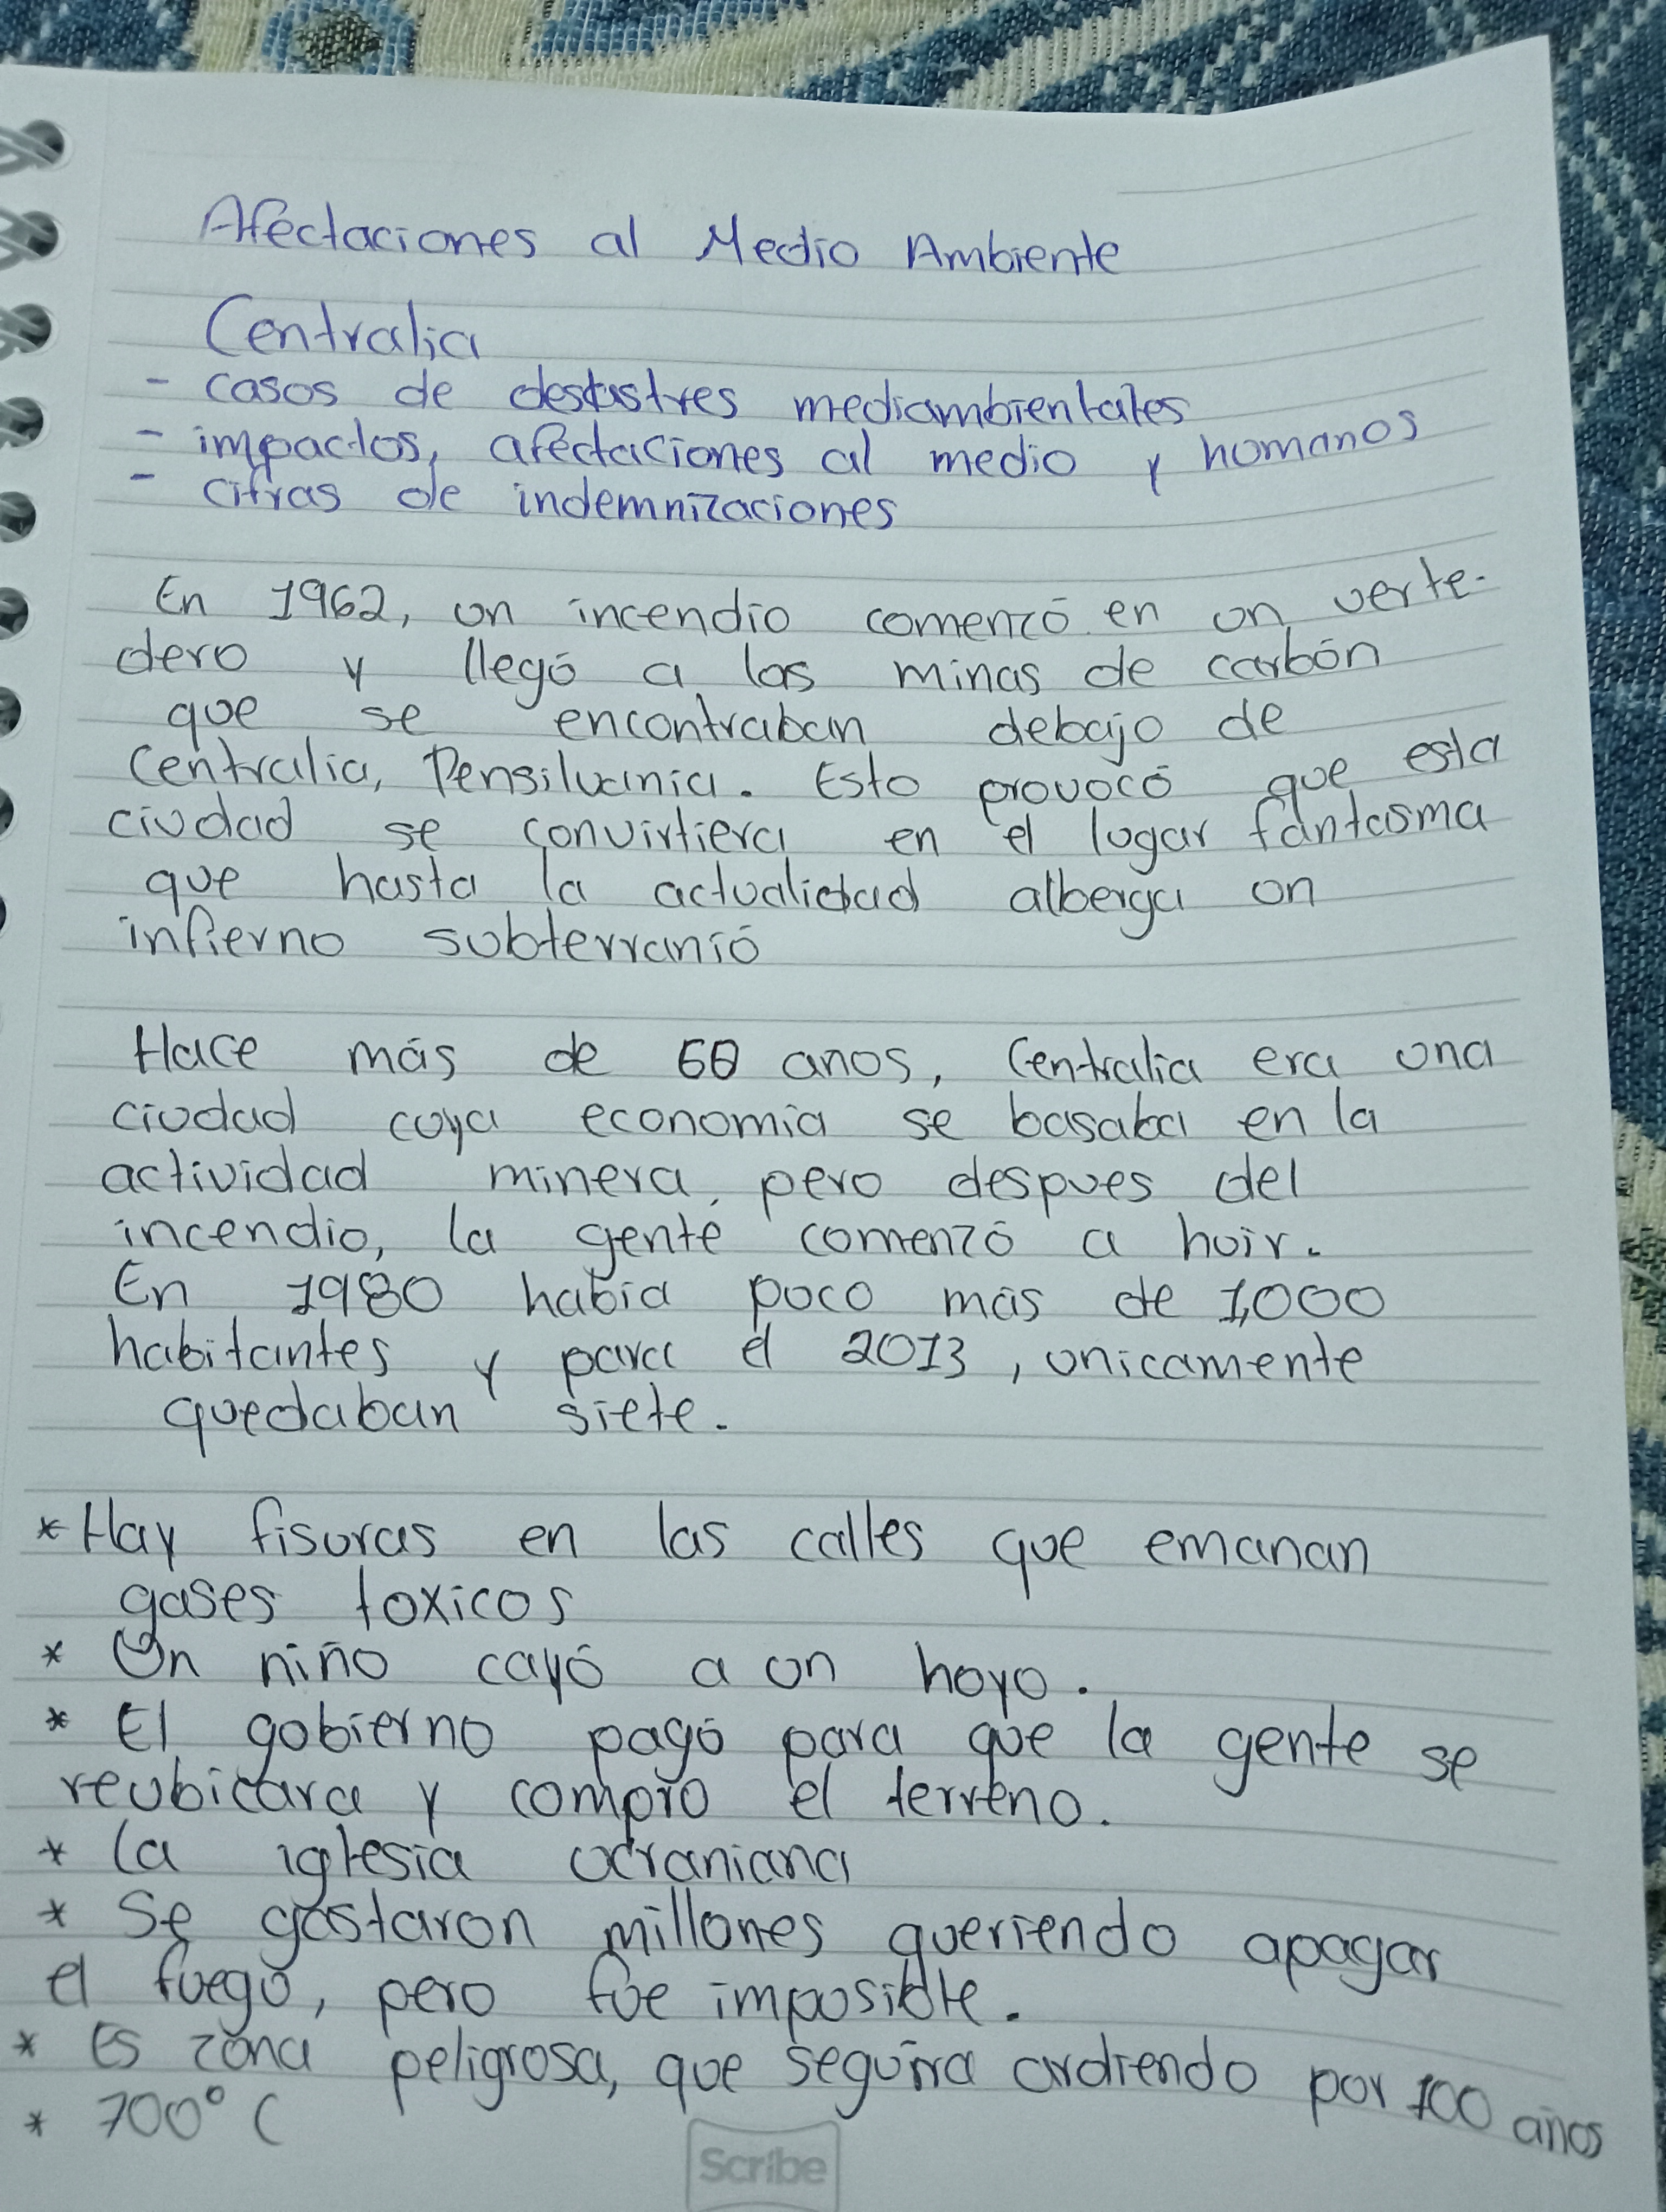 Afectaciones al Medio Ambiente
Centralia
- casos de desastres mediambientales
- impactos, afectaciones al medio y humanos
- cifras de indemnizaciones
En 1962, un incendio comenzó en un verte-
dero y llegó a las minas de carbón
que se encontraban debajo de
Centralia, Pensilvania. Esto provocó que esta
ciudad se convirtiera en el lugar fantasma
que hasta la actualidad alberga un
infierno subterranió
Hace más de 60 anos, Centralia era una
ciudad cuya economia se basaba en la
actividad minera, pero despues del
incendio, la gente comenzó a huir.
En 1980 había poco mas de 1,000
habitantes y para el 2013, unicamente
quedaban siete.
* Hay fisuras en las calles que emanan
gases toxicos
* Un niño cayó a un hoyo.
* El gobierno pagó para que la gente se
reubicara y compró el terreno.
* La iglesia ucraniana
* Se gastaron millones queriendo apagar
el fuego, pero fue imposible.
* Es zona peligrosa, que seguira ardiendo por 100 años
* 700° C
Scribe